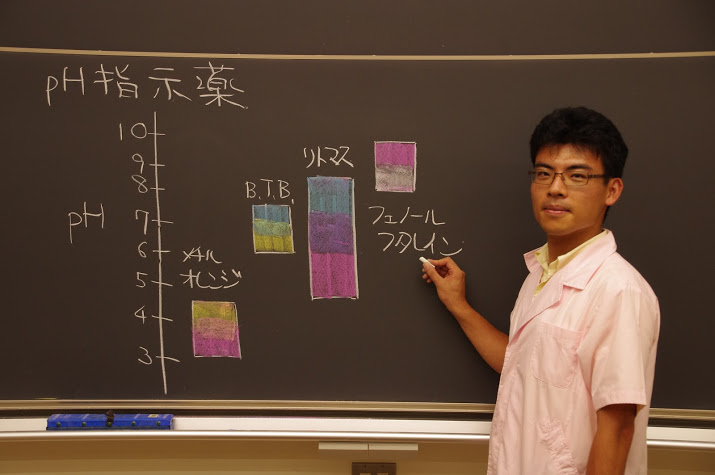 pH指示薬
10
9
8
7
6
5
4
3
pH
メチル
オレンジ
B.T.B.
リトマス
フェノール
フタレイン